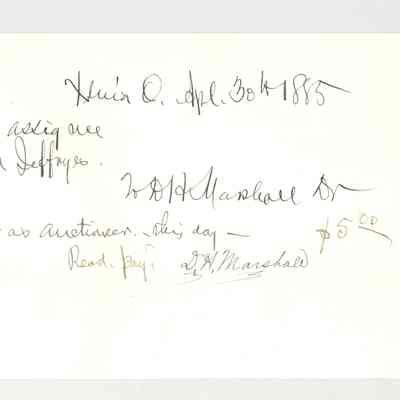 Xenia O. Apl. 30th 1885
assignee
Jeffryes.
To D H Marshall Dr
as auctioneer. this day — $5.00
Recd. pay. D. H. Marshall